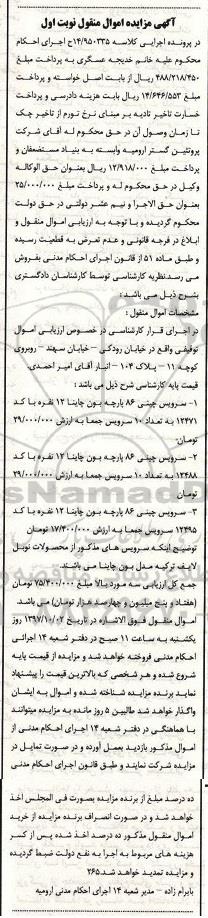 آگهی مزایده اموال منقول نوبت اول
در پرونده اجرایی کلاسه ۱۴/۹۵۰۳۳۵ج اجرای احکام
محکوم علیه خانم خدیجه عسگری به پرداخت مبلغ
۴۸۸/۲۱۸/۴۵۰ ریال از بابت اصل خواسته و پرداخت
مبلغ ۱۴/۶۴۶/۵۵۳ ریال بابت هزینه دادرسی و پرداخت
خسارت تاخیر تادیه بر مبنای نرخ تورم از تاریخ چک
تا زمان وصول آن در حق محکوم له آقای شرکت
پروتئین گستر ارومیه وابسته به بنیاد مستضعفان و
پرداخت مبلغ ۱۲/۹۱۸/۰۰۰ ریال بعنوان حق الوکاله
وکیل در حق محکوم له و پرداخت مبلغ ۲۵/۰۰۰/۰۰۰
بعنوان حق الاجرا و نیم عشر دولتی در حق دولت
محکوم گردیده و با توجه به ارزیابی اموال منقول و
ابلاغ در فرجه قانونی و عدم تعرض به قطعیت رسیده
و طبق ماده ۵۱ از قانون اجرای احکام مدنی بفروش
می رسد.نظریه کارشناسی توسط کارشناسان دادگستری
بشرح ذیل می باشد :
مشخصات اموال منقول :
در اجرای قرار کارشناسی در خصوص ارزیابی اموال
توقیفی واقع در خیابان رودکی – خیابان سهند – روبروی
کوچه ۱۱ – پلاک ۱۰۴ – انبار آقای امیر احمدی.
قیمت پایه کارشناسی شرح ذیل می باشد :
۱- سرویس چینی ۸۶ پارچه بون چاینا ۱۲ نفره با کد
۱۲۴۷۱ به تعداد ۱۰ سرویس جمعا به ارزش ۲۹/۰۰۰/۰۰۰
تومان.
۲- سرویس چینی ۸۶ پارچه بون چاینا ۱۲ نفره با کد
۱۲۴۸۸ به تعداد ۱۰ سرویس جمعا به ارزش ۲۹/۰۰۰/۰۰۰
تومان
۳- سرویس چینی ۸۶ پارچه بون چاینا ۱۲ نفره با کد
۱۲۴۹۵ سرویس جمعا به ارزش ۱۷/۴۰۰/۰۰۰ تومان
توضیح اینکه سرویس های مذکور از محصولات نوبل
لایف ترکیه مدل بون چاینا می باشند.
جمع کل ارزیابی سه مورد بالا مبلغ ۷۵/۴۰۰/۰۰۰ تومان
(هفتاد و پنج میلیون و چهارصد هزار تومان) می باشد.
اموال منقول فوق الاشاره در تاریخ ۱۳۹۷/۱۰/۰۲ روز
یکشنبه به ساعت ۱۱ صبح در دفتر شعبه ۱۴ اجرائی
احکام مدنی فروخته خواهد شد و مزایده از قیمت پایه
شروع شده و هر شخصی که بالاترین قیمت را پیشنهاد
نماید برنده مزایده شناخته شده و اموال به ایشان
واگذار خواهد شد طالبین ۵ روز مانده به مزایده میتوانند
با هماهنگی در دفتر شعبه ۱۴ اجرای احکام مدنی از
اموال مذکور بازدید بعمل آورده و در صورت تمایل در
مزایده شرکت نمایند و طبق قانون اجرای احکام مدنی
ده درصد مبلغ از برنده مزایده بصورت فی المجلس اخذ
خواهد شد و در صورت انصراف برنده مزایده از خرید
اموال منقول مذکور ده درصد اخذ شده پس از کسر
هزینه های مربوط به اجرا به نفع دولت ضبط گردیده
و مزایده تمدید خواهد شد.۲۶۵
بایرام زاده – مدیر شعبه ۱۴ اجرای احکام مدنی ارومیه